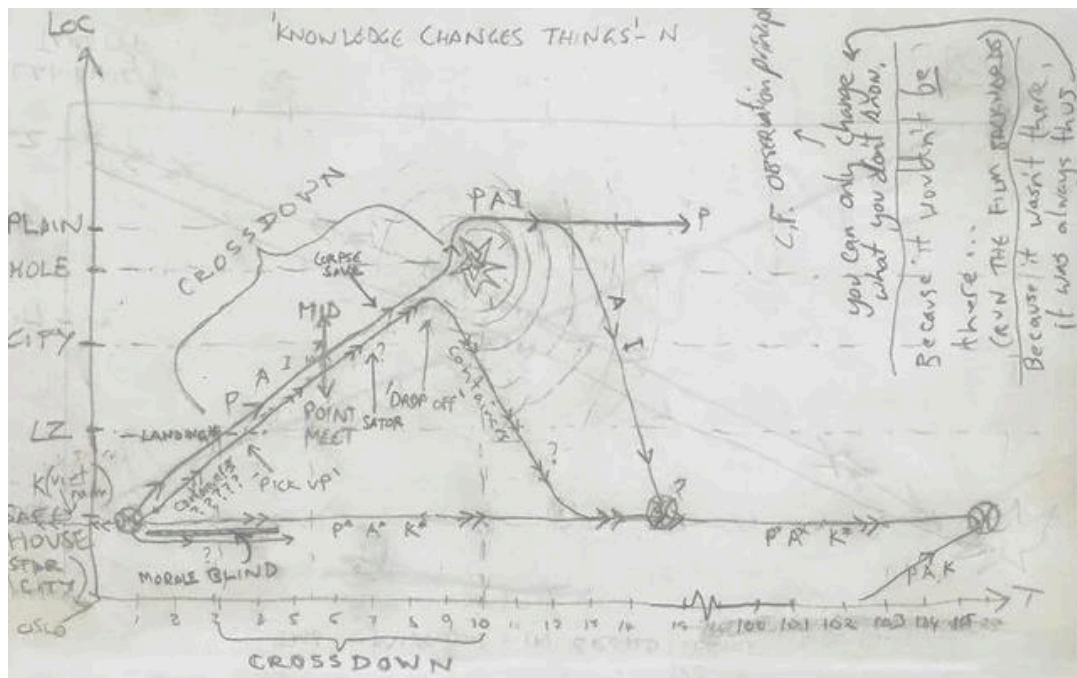 LOC
'KNOWLEDGE CHANGES THINGS' - N
PLAIN
HOLE
CITY
LZ
K
SAFE
HOUSE
STAR
CITY
OSLO
CROSSDOWN
CORPSE
SAVE
PAI
P
MID
POINT
MEET
SATOR
?
'DROP OFF'
P A I
LANDING
'PICK UP'
?????
MORALE BLIND
?
A
I
?
?
P A K
P A K
P A K
T
1 2 3 4 5 6 7 8 9 10 11 12 13 14 15 100 101 102 103 104 105
CROSSDOWN
C.F. observation
you can only change
what you don't know.
Because it wouldn't be
there...
(RUN THE FILM BACKWARDS)
Because it wasn't there,
it was always thus